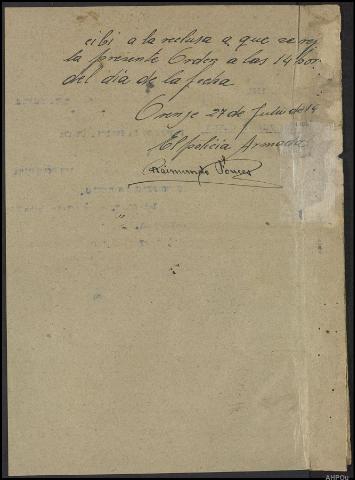 cibi a la reclusa a que se re
la presente Orden a las 14 hor
del dia de la fecha.
Orense 27 de Julio de 19
El policia Armado
Raimundo
AHPOu